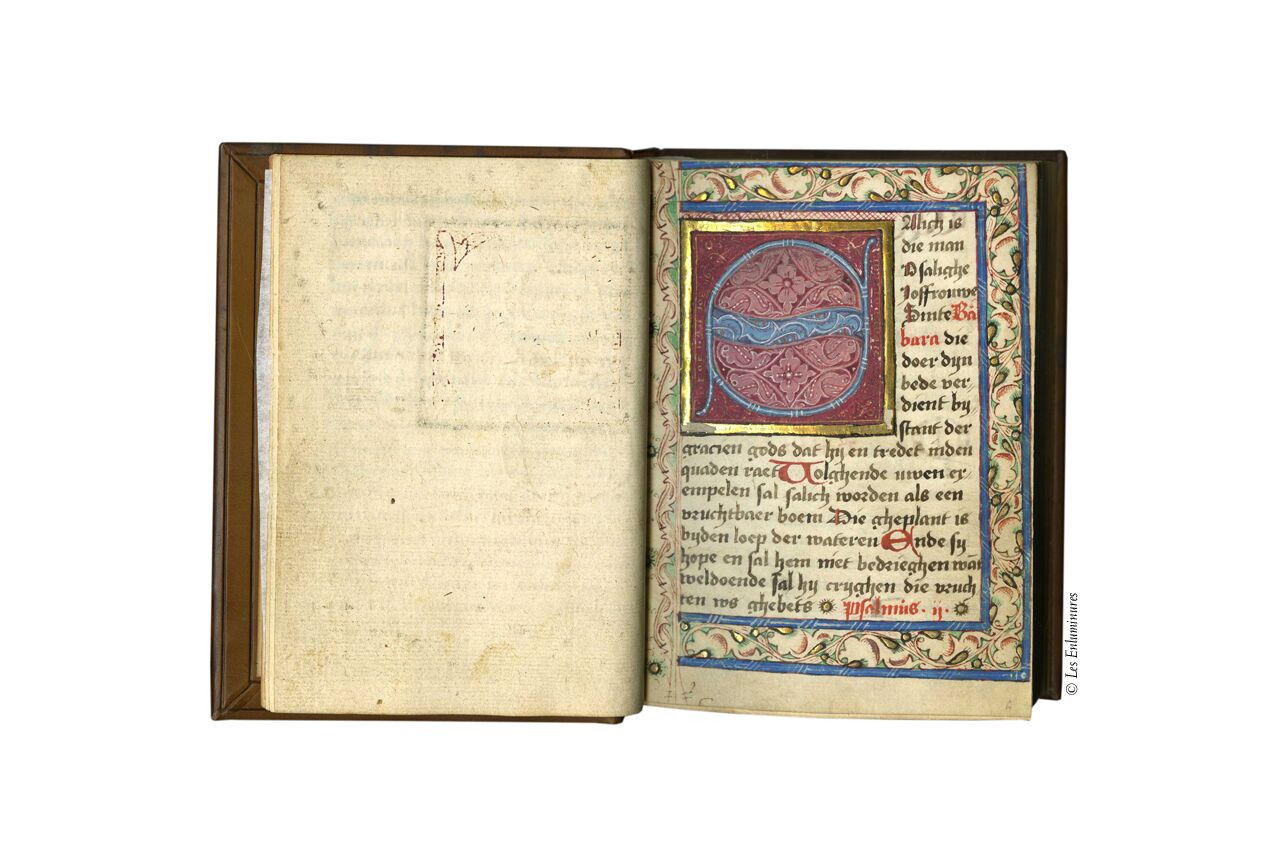 Salich is
die man
O salighe
Joffrouwe
Sinte Bar
bara die
doer dyn
bede ver
dient by
stant der
gracien gods dat hij en tredet inden
quaden raet Volghende uwen ex
empelen sal salich worden als een
vruchtbaer boem Die gheplant is
byden loep der wateren Ende sy
hope en sal hem niet bedrieghen want
weldoende sal hij cryghen die vruch
ten ws ghebets Psalmus . ij .
© Les Enluminures